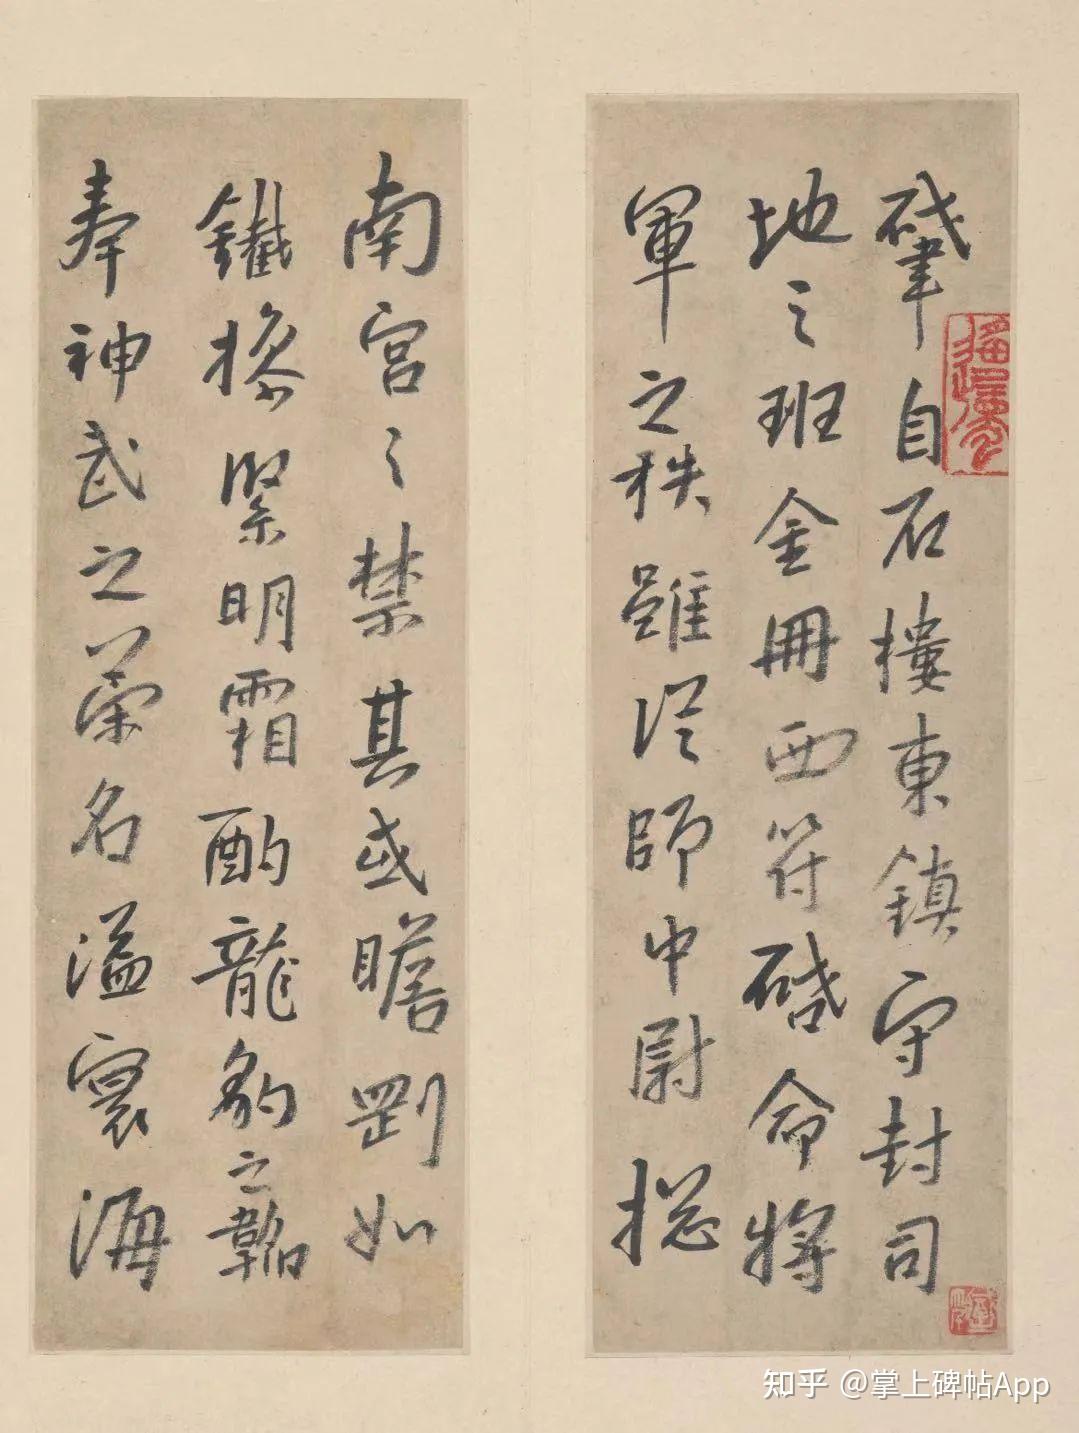 肇自石樓東鎮守封司
地之班金冊西符啓命將
軍之秩雖從師中尉揔
南宮之禁其或瞻剛如
鐵操緊明霜酌龍豹之韜
奉神武之榮名溢寰海
知乎 @掌上碑帖App